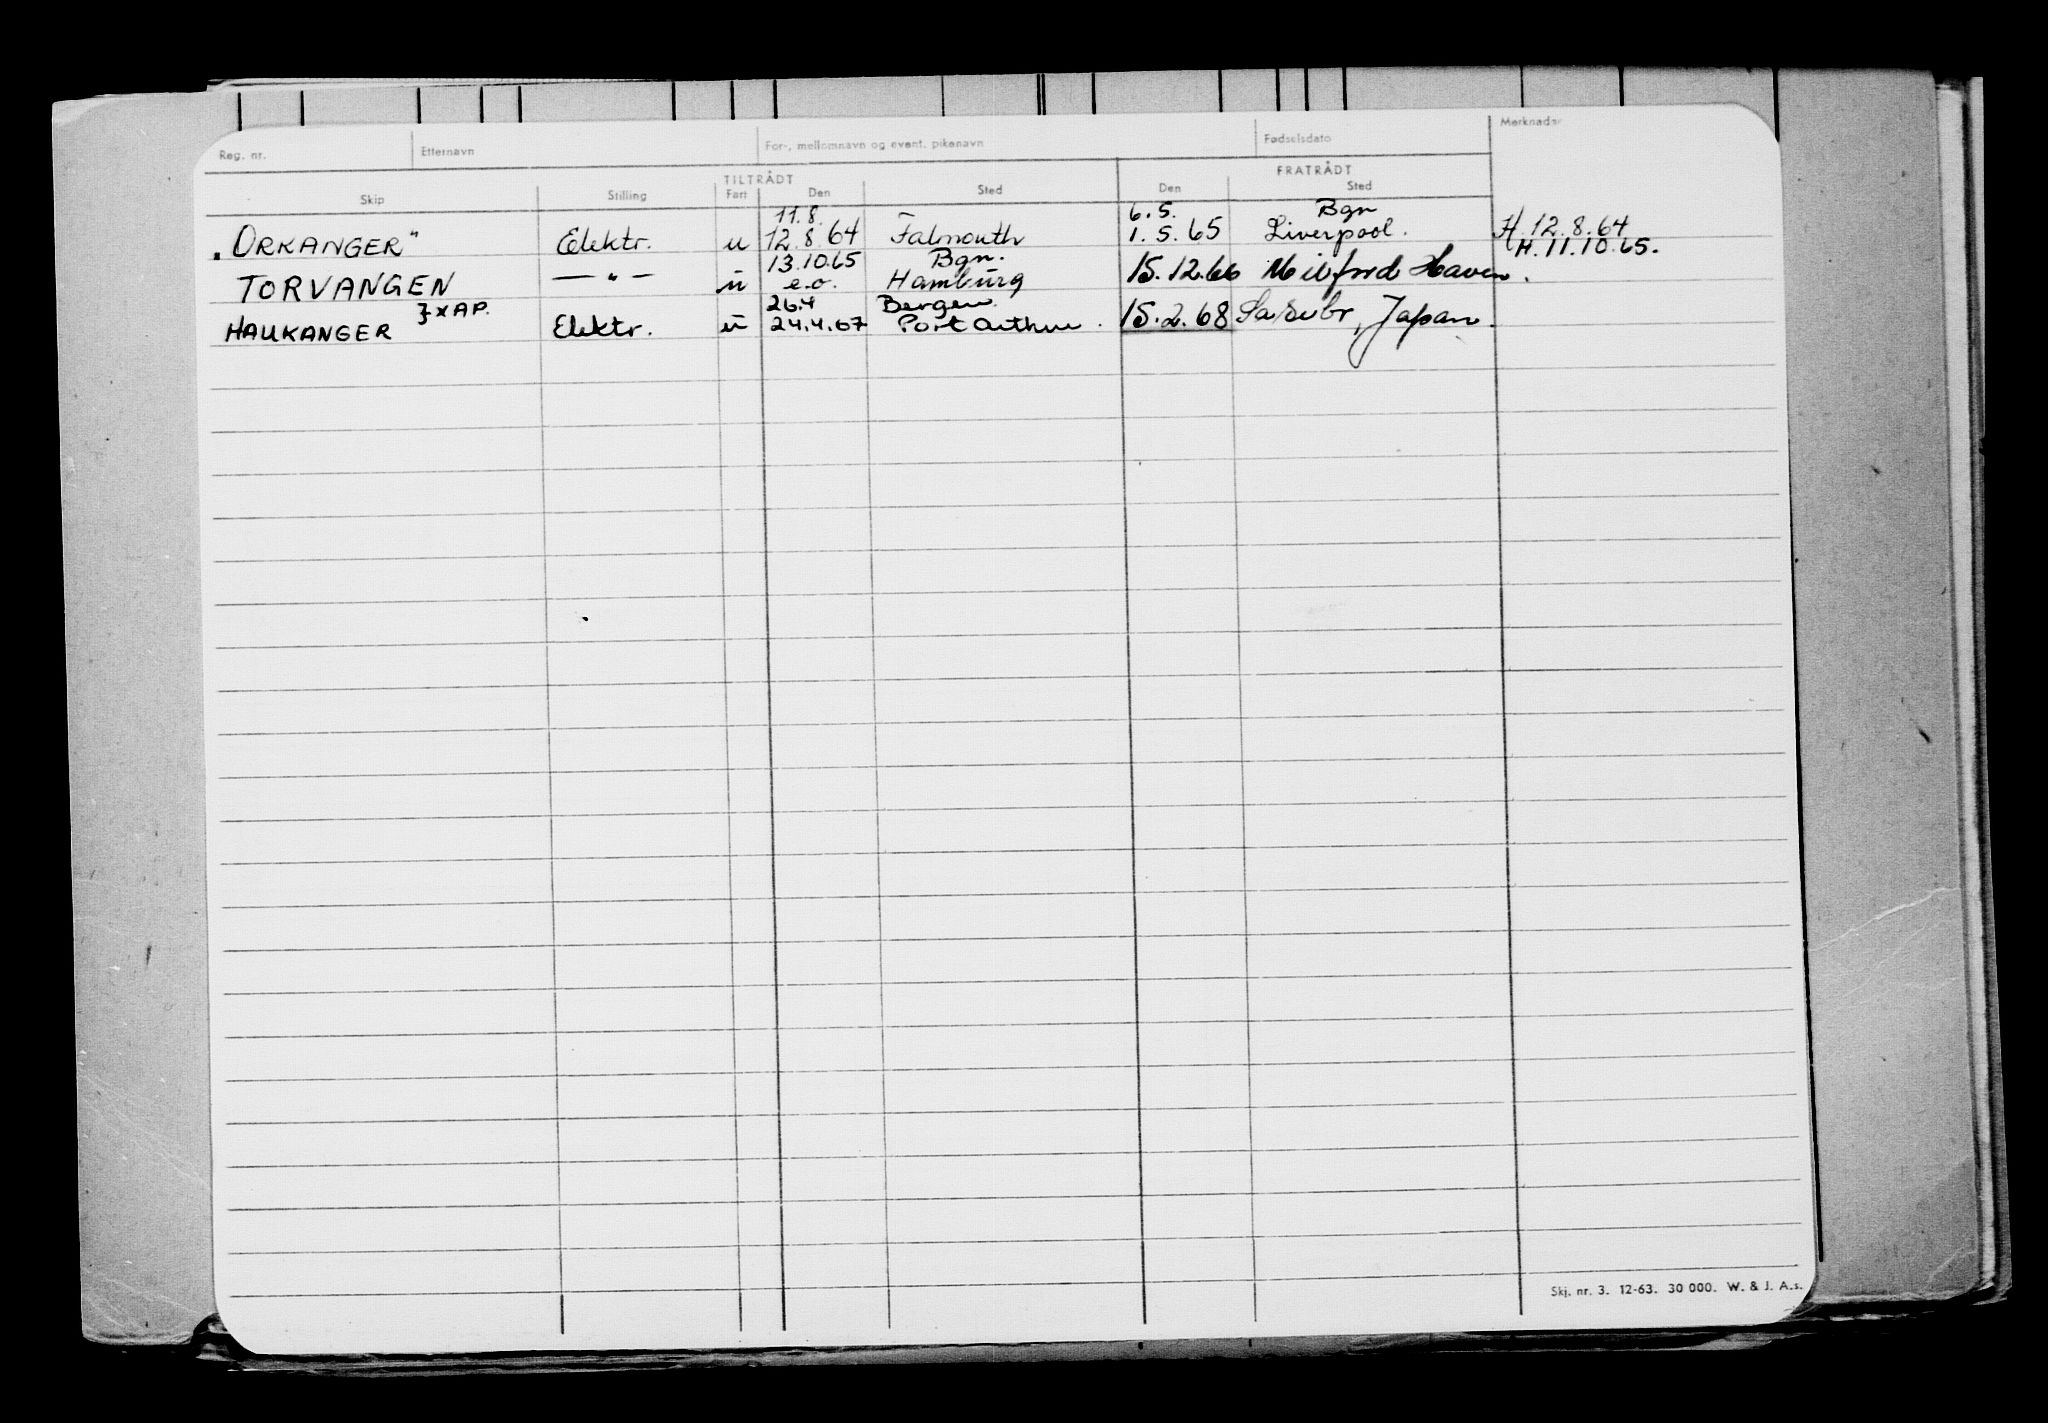 Reg. nr. Etternavn For-, mellomnavn og event. pikenavn Fødselsdato Merknader
TILTRÅDT FRATRÅDT
Skip Stilling Fart Den Sted Den Sted
11.8. 6.5. Bgn
"ORKANGER" Elektr. u 12.8.64 Falmouth 1.5.65 Liverpool. H. 12.8.64
13.10.65 Bgn. H. 11.10.65.
TORVANGEN — " — u e.o. Hamburg 15.12.66 Milford Haven.
} x AP. 26.4 Bergen.
HAUKANGER Elektr. u 24.4.67 Port Arthur. 15.2.68 Japan.
Skj. nr. 3. 12-63. 30 000. W. & J. A.s.